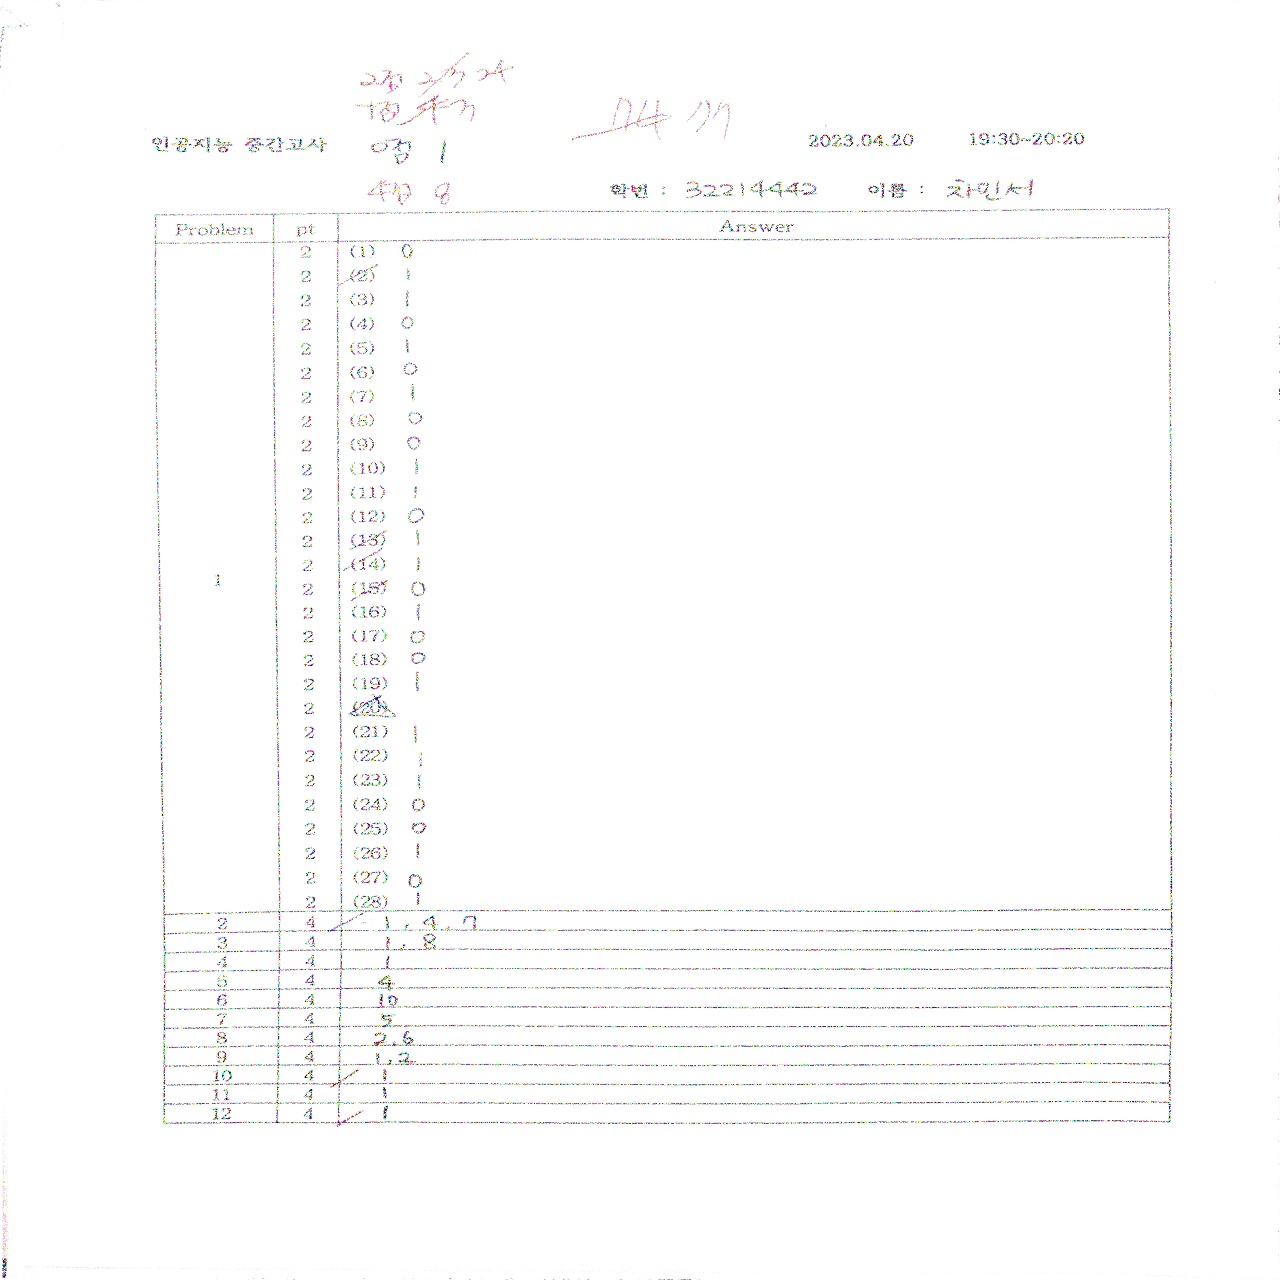 2점 24
1점
인공지능 중간고사 0점 1 2023.04.20 19:30~20:20
4점 8 학번 : 32214442 이름 : 차민서
Problem pt Answer
1
2 (1) 0
2 (2) 1
2 (3) 1
2 (4) 0
2 (5) 1
2 (6) 0
2 (7) 1
2 (8) 0
2 (9) 0
2 (10) 1
2 (11) 1
2 (12) 0
2 (13) 1
2 (14) 1
2 (15) 0
2 (16) 1
2 (17) 0
2 (18) 0
2 (19) 1
2 (20)
2 (21) 1
2 (22) 1
2 (23) 1
2 (24) 0
2 (25) 0
2 (26) 1
2 (27) 0
2 (28) 1
2 4 1, 4, 7
3 4 1, 8
4 4 1
5 4 4
6 4 10
7 4 5
8 4 2, 6
9 4 1, 2
10 4 1
11 4 1
12 4 1